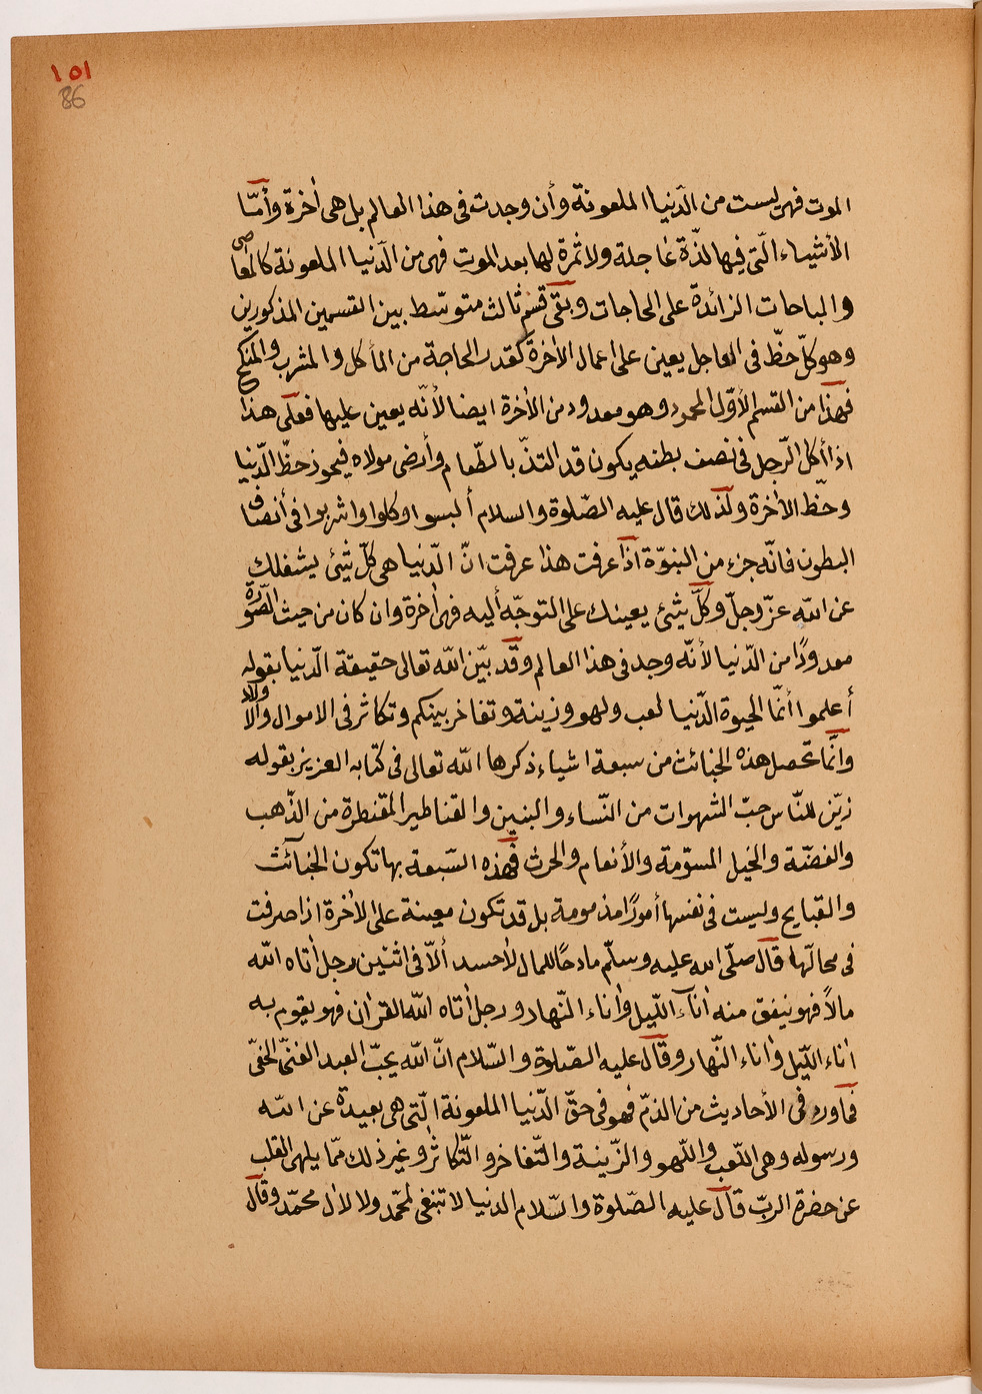 ١٥١
86
الموت فهى ليست من الدّنيا الملعونة وأن وجدت فى هذا العالم بل هى أخرة وأمّا
الأشياء الّتى فيها لذّة عاجلة ولا ثمرة لها بعد الموت فهى من الدّنيا الملعونة كالمعاصى
والمباحات الزائدة على الحاجات وبقى قسم ثالث متوسّط بين القسمين المذكورين
وهو كلّ حظّ فى العاجل يعين على اعمال الأخرة كقدر الحاجة من المأكل والمشرب والمنكح
فهذا من القسم الأوّل المحمود وهو معدود من الأخرة ايضا لأنّه يعين عليها فعلى هذا
اذا أكل الرّجل فى نصف بطنه يكون قد التذّ بالطّعام وأرضى مولاه فيحوز حظّ الدّنيا
وحظّ الأخرة ولذلك قال عليه الصّلوة والسلام ألبسوا وكلوا واشربوا فى أنصاف
البطون فانّه جزء من النبوّة اذا عرفت هذا عرفت انّ الدّنيا هى كلّ شئ يشغلك
عن الله عزّ وجلّ وكلّ شئ يعينك على التوجّه أليه فهى أخرة وان كان من حيث الصّورة
معدودًا من الدّنيا لأنّه وجد فى هذا العالم وقد بيّن الله تعالى حقيقة الدّنيا بقوله
أعلموا أنّما الحيوة الدّنيا لعب ولهو وزينة وتفاخر بينكم وتكاثر فى الاموال والأولاد
وانّما تحصل هذه الخبائث من سبعة اشياء ذكرها الله تعالى فى كتابه العزيز بقوله
زيّن للنّاس حبّ الشهوات من النّساء والبنين والقناطير المقنطرة من الذّهب
والفضّة والخيل المسوّمة والأنعام والحرث فهذه السّبعة بها تكون الخبآئث
والقبايح وليست فى نفسها أمورًا مذمومة بل قد تكون معينة على الأخرة اذا صرفت
فى محالّها قال صلّى الله عليه وسلّم مادحًا للمال لاحسد ألاّ فى اثنين رجل أتاه الله
مالاً فهو ينفق منه أنآء اللّيل وأناء النّهار ورجل أتاه الله القرأن فهو يقوم به
أناء اللّيل وأناء النّهار وقال عليه الصّلوة والسّلام انّ الله يحبّ العبد الغنىّ الخفىّ
فما ورد فى الأحاديث من الذمّ فهو فى حقّ الدّنيا الملعونة الّتى هى بعيدة عن الله
ورسوله وهى اللّعب واللّهو والزّينة والتّفاخر والتّكاثر وغير ذلك ممّا يلهى القلب
عن حضرة الربّ قال عليه الصّلوة والسّلام الدنيا لا تنبغى لمحمّد ولا لأل محمّد وقال